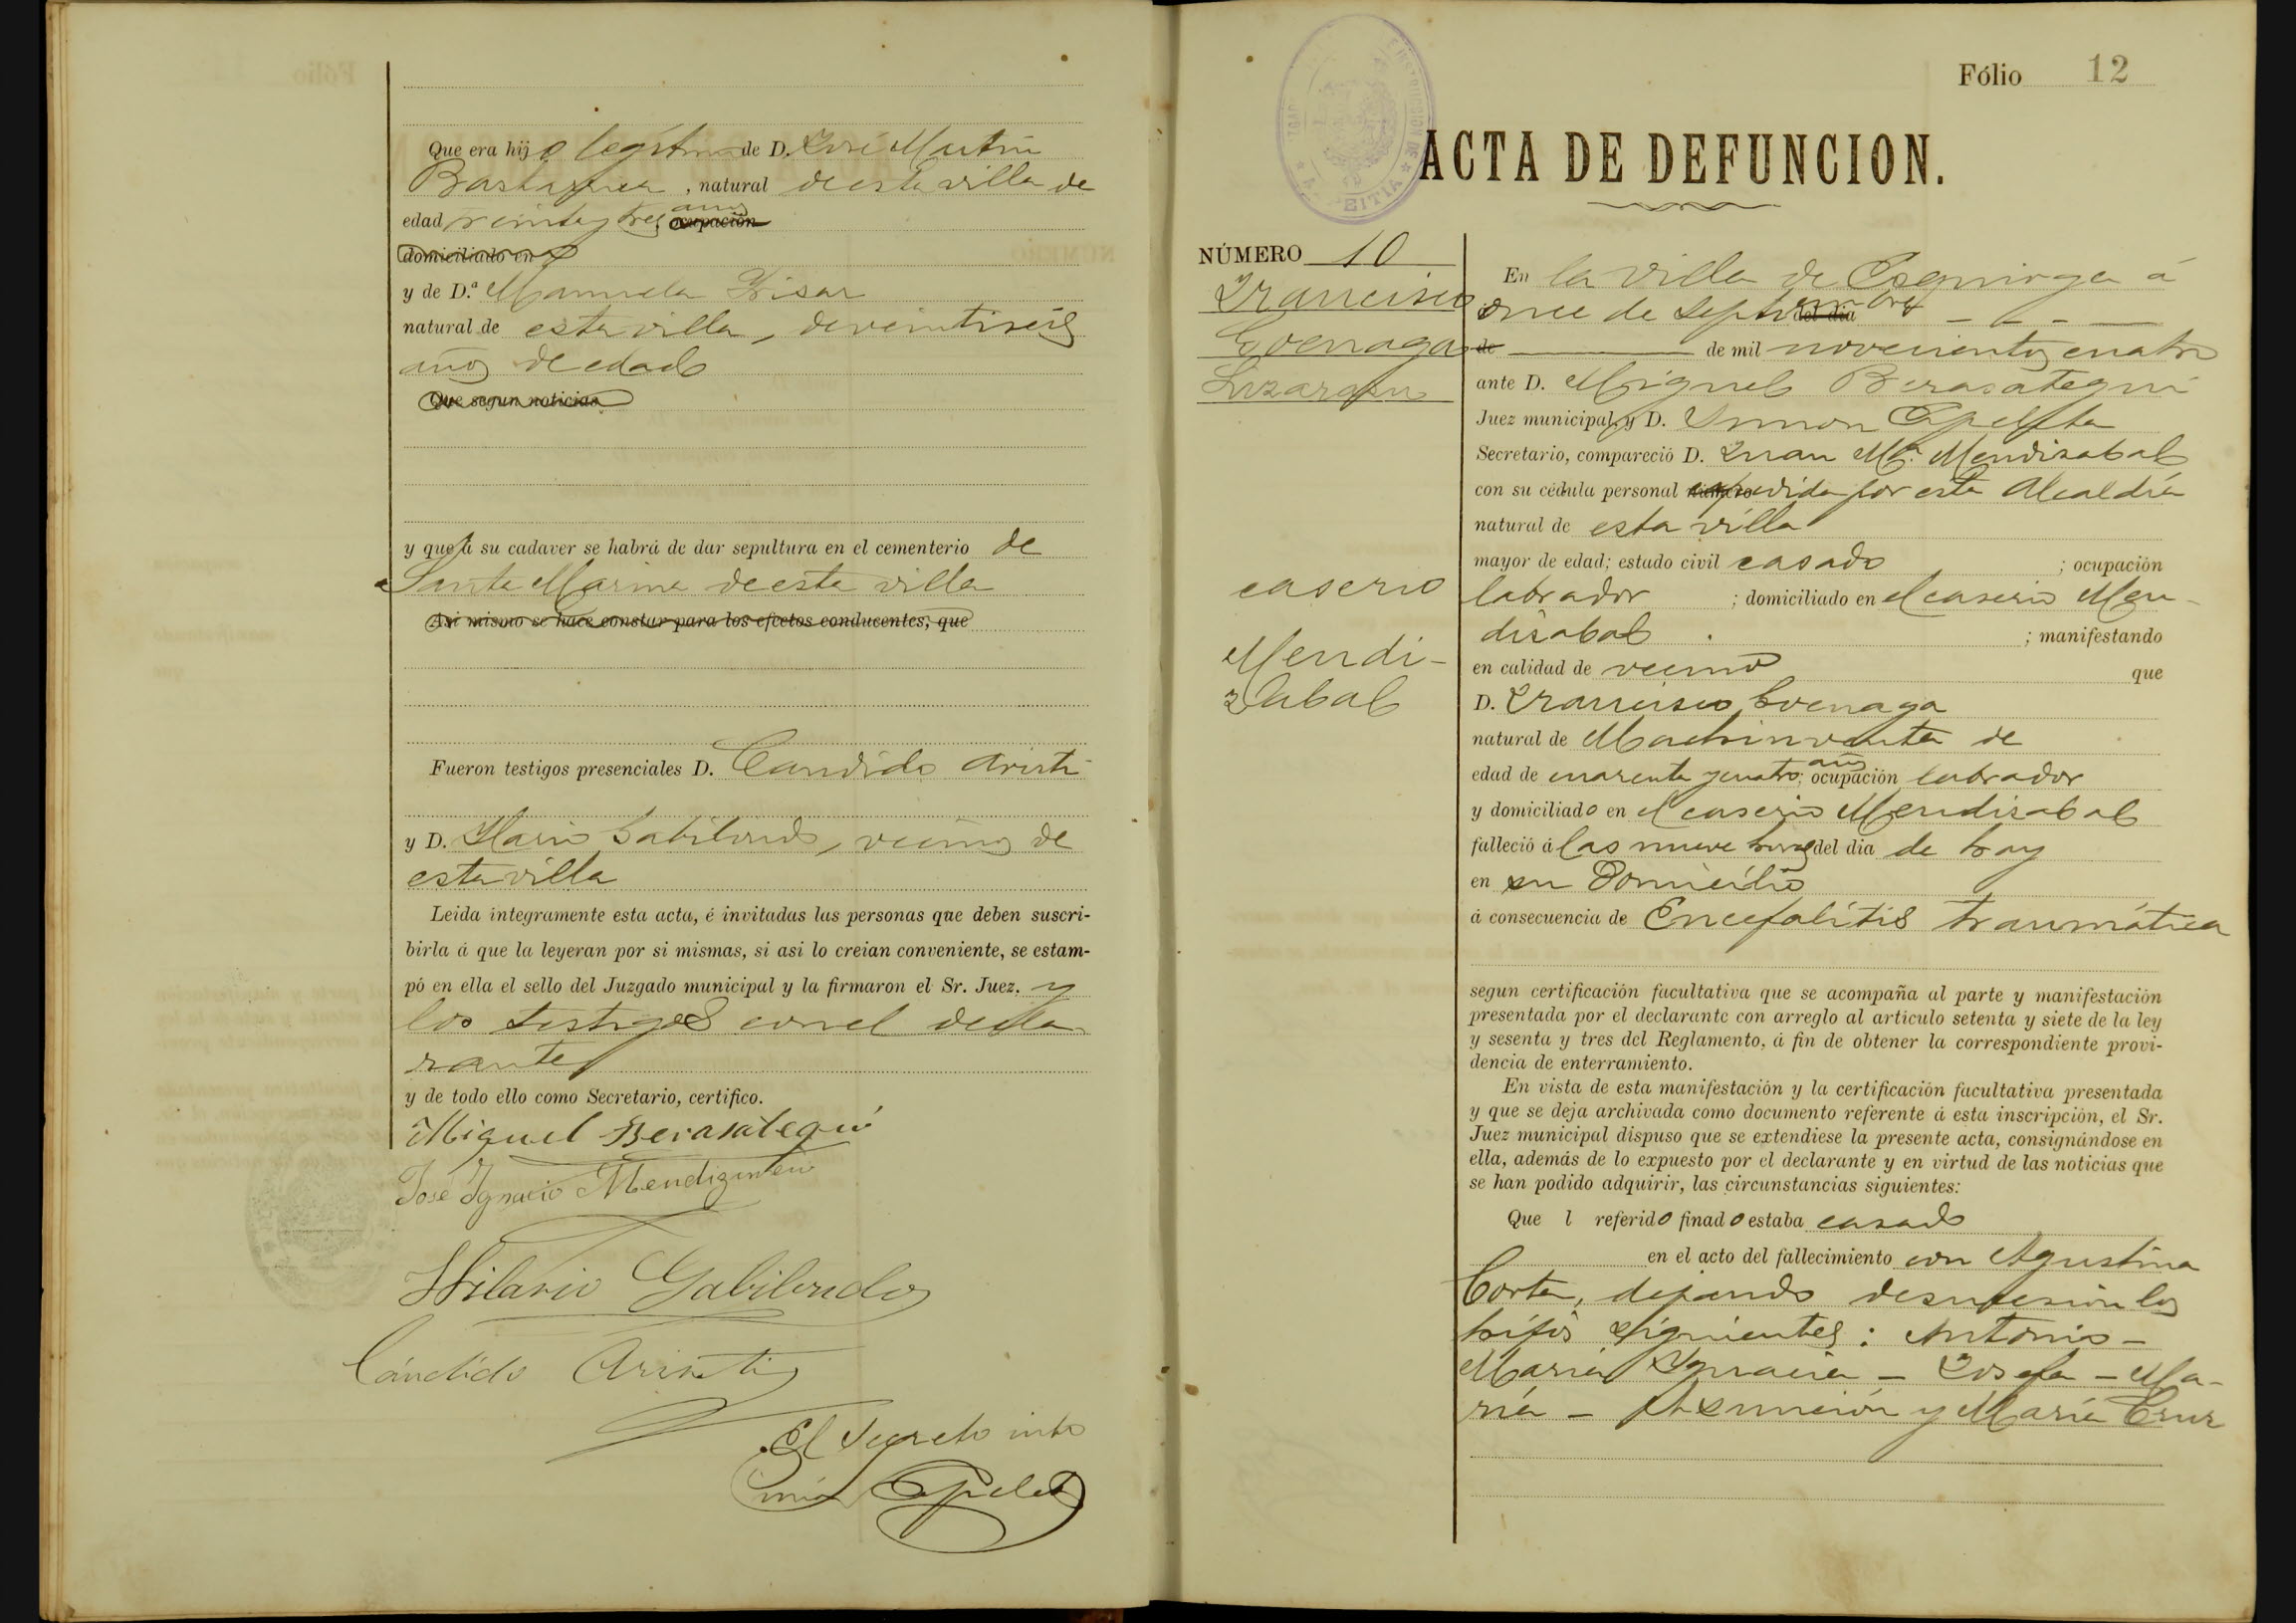 Que era hijo legítimo de D. José Martín
, natural de esta villa de
edad veinte y tres años ocupación
domiciliado en
y de D.ª Manuela
natural de esta villa, de veintiseis
años de edad
Que segun noticias
y que á su cadaver se habrá de dar sepultura en el cementerio de
Santa Marina de esta villa
Asi mismo se hace constar para los efectos conducentes, que
Fueron testigos presenciales D. Candido Aristi
y D. Ilario Gabilondo, vecinos de
esta villa
Leida íntegramente esta acta, é invitadas las personas que deben suscri-
birla á que la leyeran por si mismas, si asi lo creian conveniente, se estam-
pó en ella el sello del Juzgado municipal y la firmaron el Sr. Juez, y
los testigos con el decla
rante
y de todo ello como Secretario, certifico.
Miguel Berasategui
José Ygnacio
Hilario Gabilondo
Cándido Aristi
El Secreto into
Fólio 12
ACTA DE DEFUNCION.
NÚMERO 10
Francisco
Goenaga
caserio
Mendi-
zabal
En la villa de Ezquioga á
once de septiembre del dia
de de mil novecientos cuatro
ante D. Miguel Berasategui
Juez municipal, y D. Simon
Secretario, compareció D. Juan Mª Mendizabal
con su cédula personal número expedida por esta Alcaldía
natural de esta villa
mayor de edad; estado civil casado ; ocupación
labrador ; domiciliado en el caserio Men-
dizabal ; manifestando
en calidad de vecino que
D. Francisco Goenaga
natural de Machinventa de
edad de cuarenta y cuatro años; ocupación labrador
y domiciliado en el caserio Mendizabal
falleció á las nueve horas del dia de hoy
en su Domicilio
á consecuencia de Encefalitis traumática
segun certificación facultativa que se acompaña al parte y manifestación
presentada por el declarante con arreglo al articulo setenta y siete de la ley
y sesenta y tres del Reglamento, á fin de obtener la correspondiente provi-
dencia de enterramiento.
En vista de esta manifestación y la certificación facultativa presentada
y que se deja archivada como documento referente á esta inscripción, el Sr.
Juez municipal dispuso que se extendiese la presente acta, consignándose en
ella, además de lo expuesto por el declarante y en virtud de las noticias que
se han podido adquirir, las circunstancias siguientes:
Que l referido finado estaba casado
en el acto del fallecimiento con Agustina
Corta, dejando de sucesión los
hijos siguientes: Antonio -
María Ygnacia - Josefa - Ma-
ría - Asunción y María Cruz